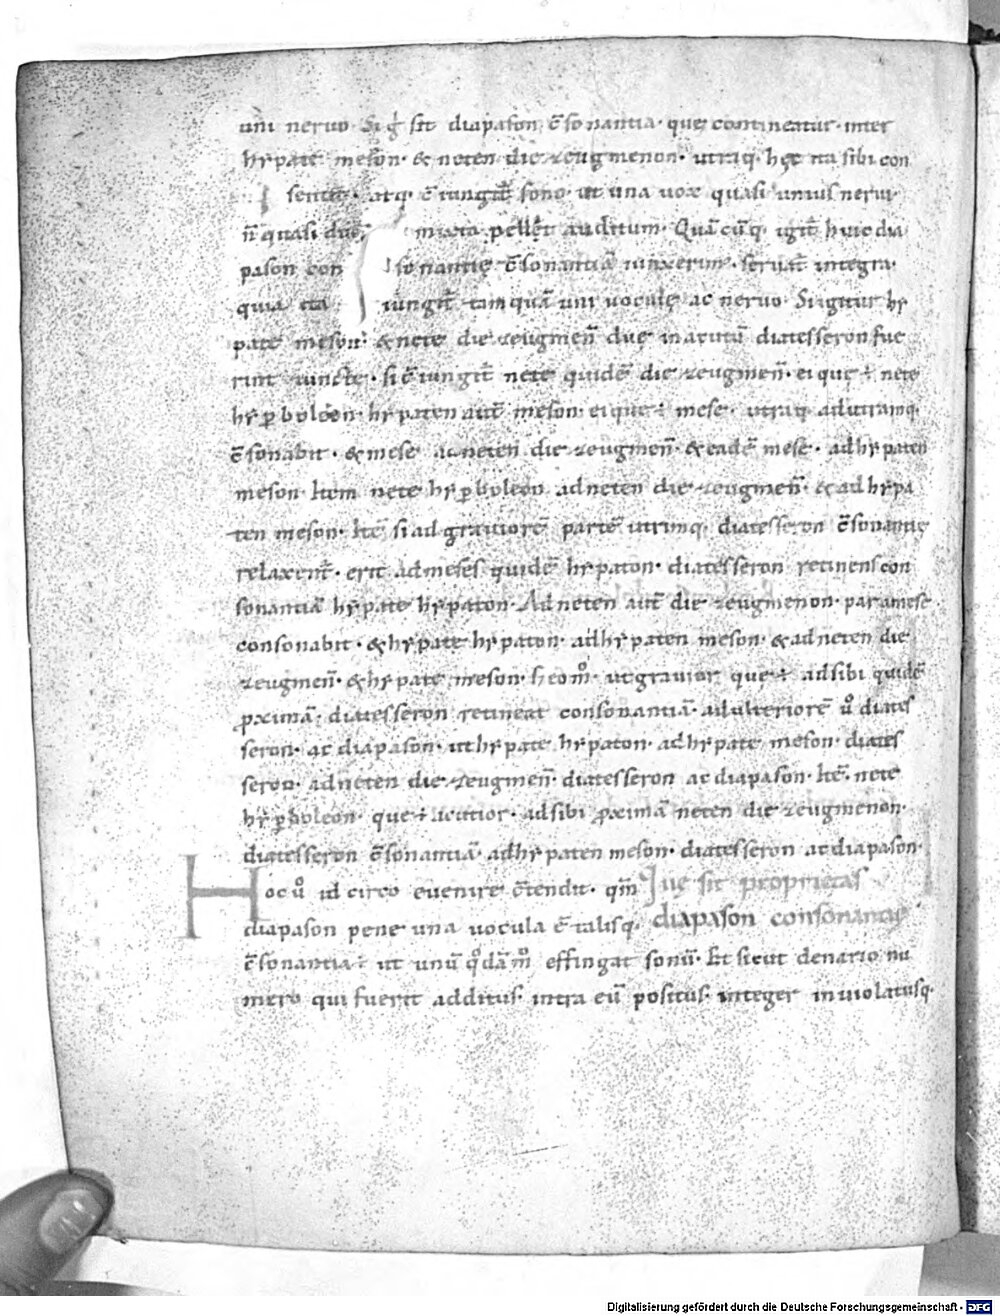 uni neruo. Si g̊ sit diapason c̄sonantia. quę contineatur. inter
hypate meson. & neten diezeugmenon. utraq. hęc ita sibi con
sentit. atq. c̄iungit̄ sono. ut una uox quasi unius nerui
n̄ quasi duę mixta pellet auditum. Quā cūq. igit̄ huic dia
pason consonantię c̄sonantiā iunxerim. seruat̄ integra.
quia ita iungit̄ tamquā uni uoculę ac neruo. Si igitur hy
pate meson. & nete diezeugmen̄ duę in acutū diatesseron fue
rint iuncte. si c̄iungit̄ nete quidē diezeugmen̄. ei que ÷ nete
hyp̄boleon. hypaten aut̄ meson. ei que ÷ mese. utraq. ad utramq.
c̄sonabit. & mese ac neten diezeugmen̄. & eadē mese. ad hypaten
meson. Item nete hyp̄boleon ad neten diezeugmen̄. & ad hypa
ten meson. Itē si ad grauiorē partē utrimq. diatesseron c̄sonantię
relaxent̄. erit ad meses quidē hypaton. diatesseron retinens con
sonantiā hypate hypaton. Ad neten aut̄ diezeugmenon. paramese
consonabit. & hypate hypaton. ad hypaten meson. & ad neten die
zeugmen̄. & hypate meson. ut grauior que ÷ ad sibi quidē
p̄ximā. diatesseron retineat consonantiā. ad ulteriorē ů diates
seron. ac diapason. ut hypate hypaton. ad hypate meson. diates
seron. ad neten diezeugmen̄. diatesseron ac diapason. Itē. nete
hyp̄boleon. que ÷ acutior. ad sibi p̄ximā neten diezeugmenon.
diatesseron c̄sonantiā. ad hypaten meson. diatesseron ac diapason.
Hoc ů idcirco euenire c̄tendit. qm̄ Que sit proprietas
diapason pene una uocula ē. talisq. diapason consonantie
c̄sonantia ÷ ut unū q̊dā m̊ effingat sonū. Et sicut denario nu
mero qui fuerit additus. intra eū positus. integer inuiolatusq.
Digitalisierung gefördert durch die Deutsche Forschungsgemeinschaft - DFG